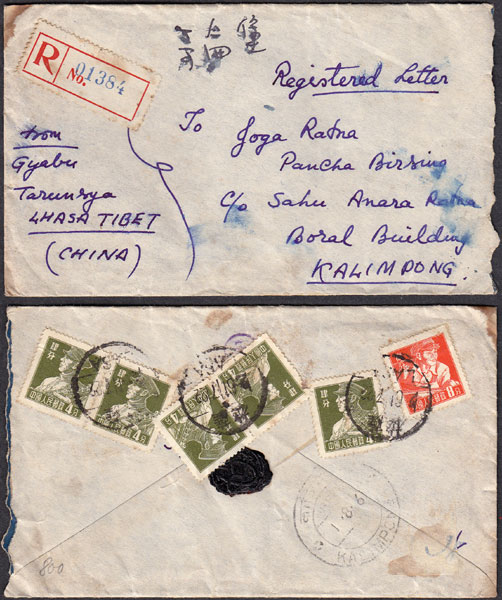 R
No. 01384
Registered Letter
from
Gyabu
Tarunsya
LHASA TIBET
(CHINA)
To Joga Ratna
Pancha Birsing
C/o Sahu Anara Ratna
Boral Building
KALIMPONG.
肆分
中国人民邮政 4分
肆分
中国人民邮政 4分
中国人民邮政 4分
肆分
中国人民邮政 4分
肆分
中国人民邮政 4分
8分
KALIMPONG
800